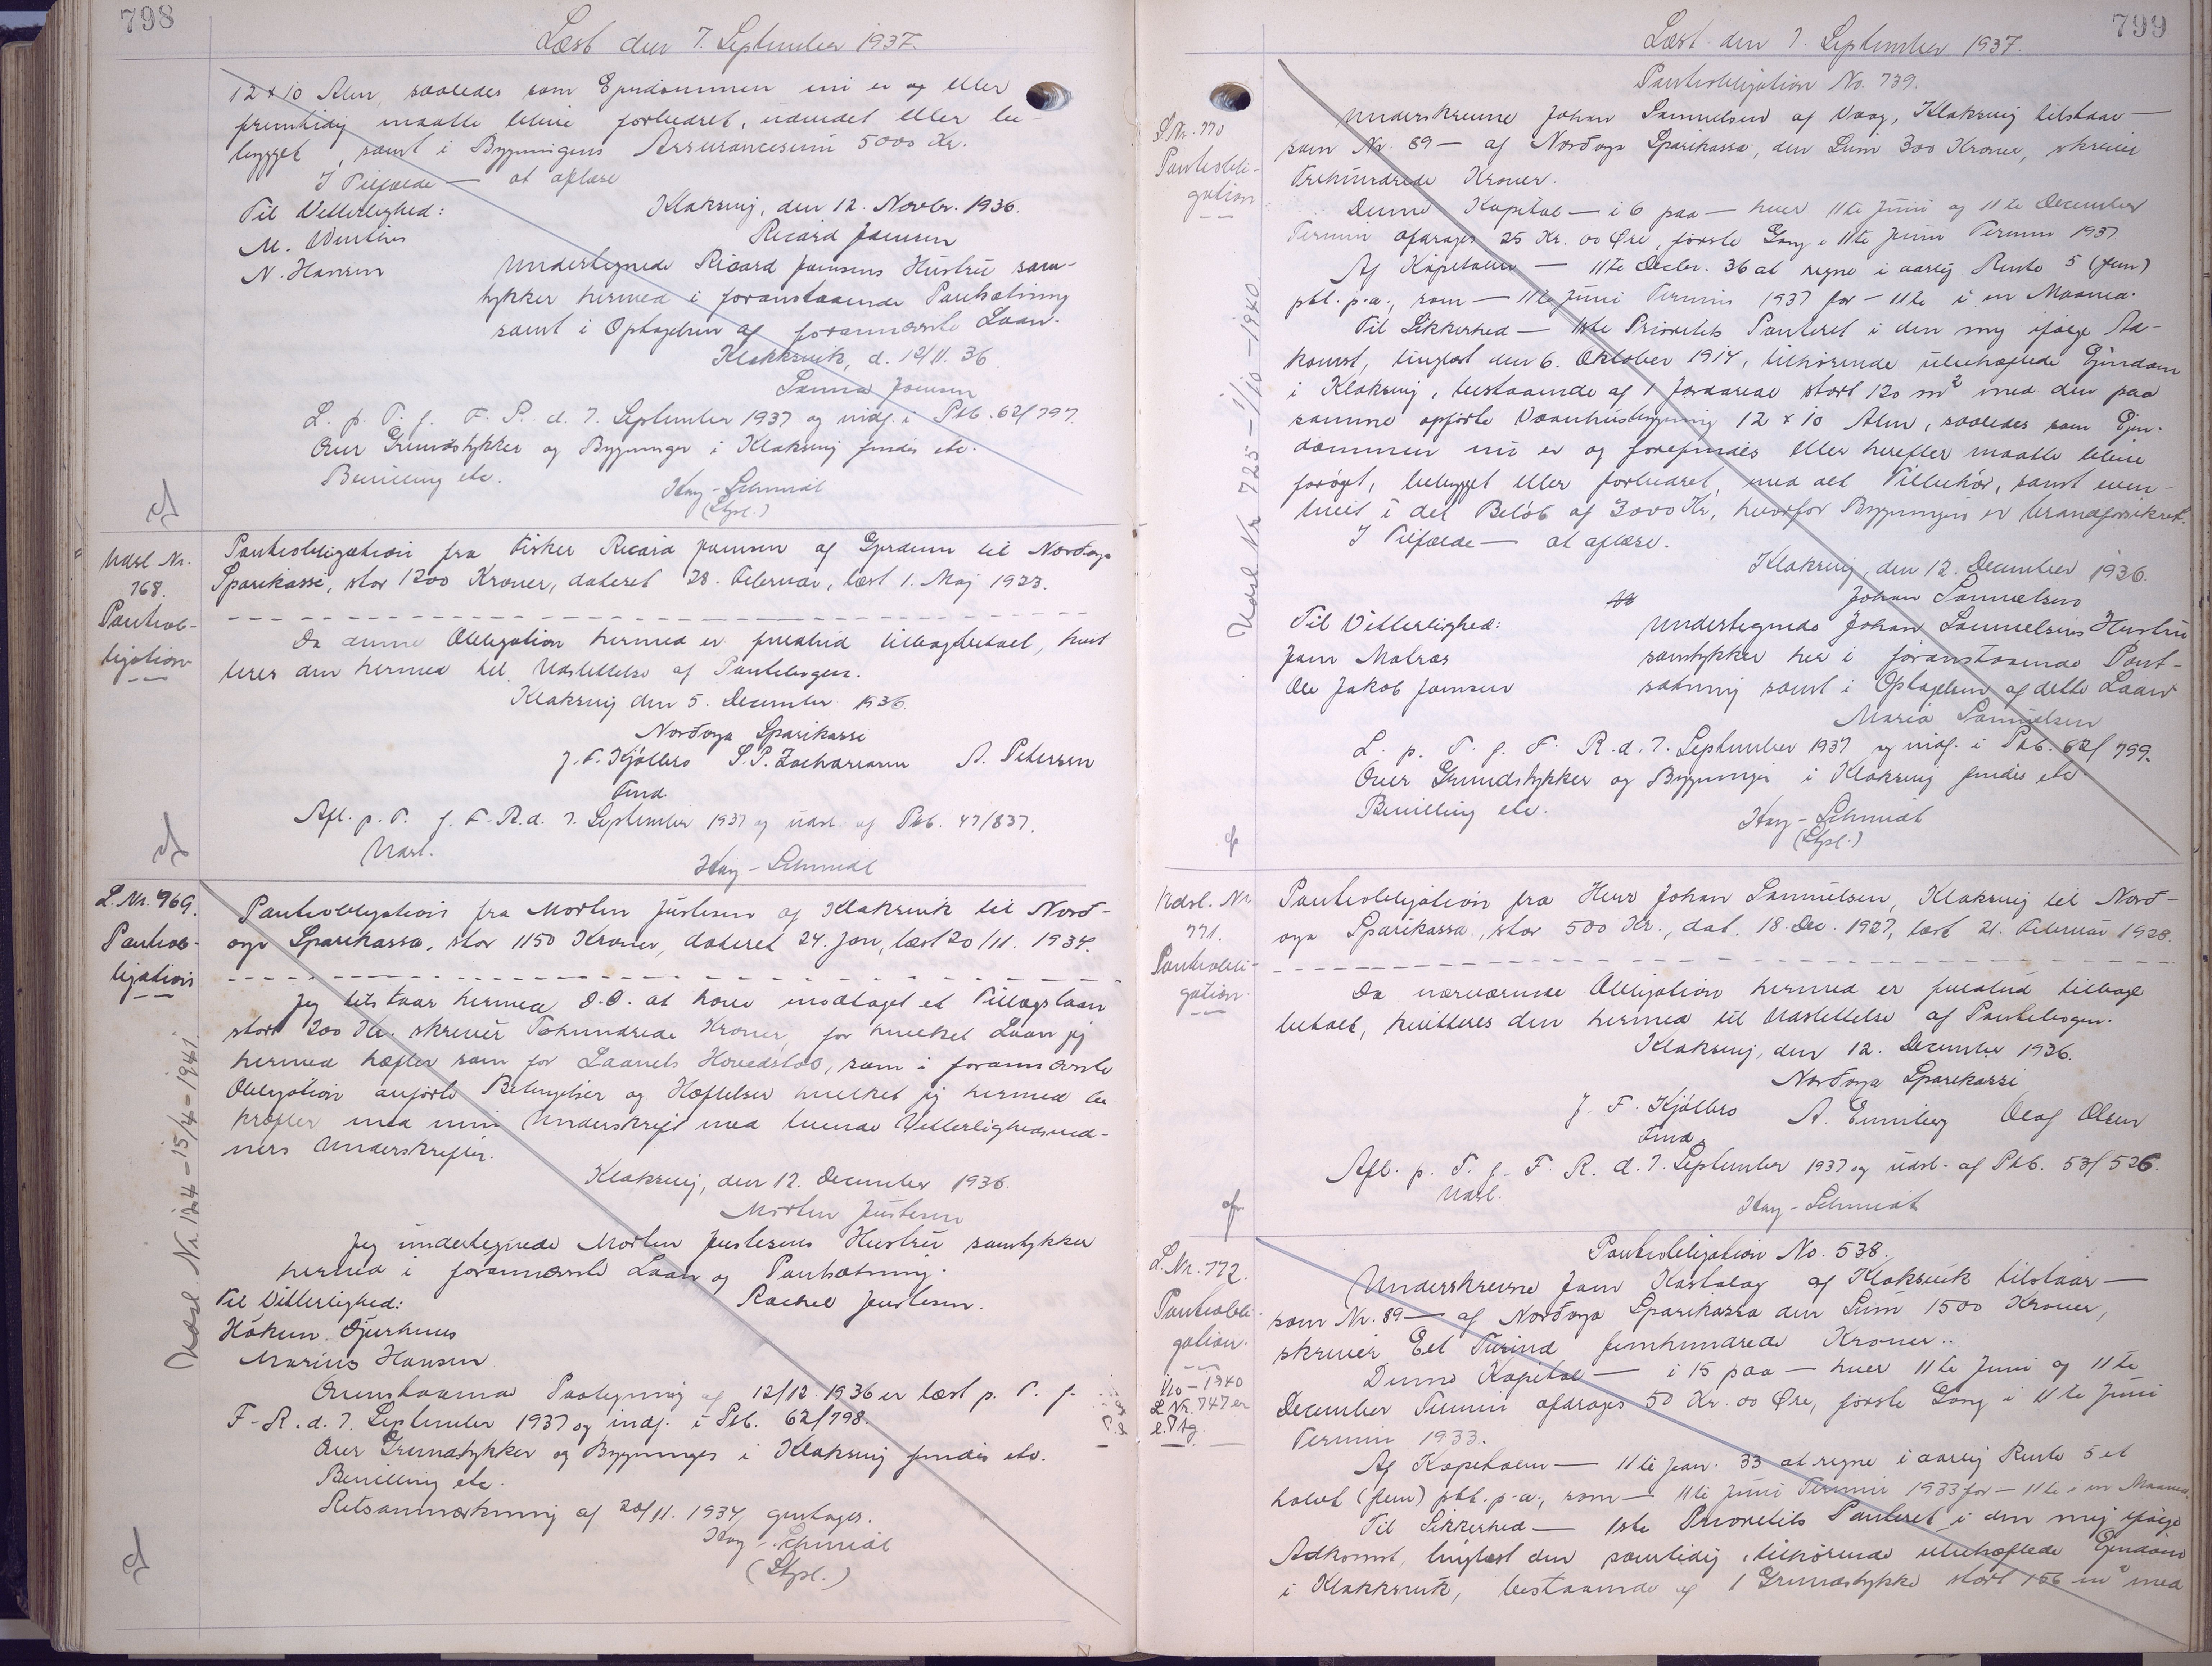 798
Læst den 7. September 1937.
12 x 10 Alen, saaledes som Ejendommen nu er og eller
fremtidig maatte blive forbedret, udvidet eller be-
bygget, samt i Bygningens Assurancesum 5000 Kr.
I Tilfælde — at aflæse
Til Vitterlighed: Klaksvig, den 12. Novbr. 1936.
M. Winther Ricard Joensen
N. Hansen Undertegnede Ricard Joensens Hustru sam-
tykker hermed i foranstaaende Pantsætning
samt i Optagelsen af forannævnte Laan.
Klakksvik, d. 12/11. 36
Sanna Joensen
L. p. T. f. F. R. d. 7. September 1937 og indf. i Ptb. 62/797.
Over Grundstykker og Bygninger i Klaksvig findes etc.
Bevilling etc.
Kay-Schmidt
(Stpl.)
Udsl. Nr.
768.
Pantob-
ligation
Pantobligation fra Fisker Ricard Joensen af Gjerdum til Norðoya
Sparikassi, stor 1200 Kroner, dateret 28. Februar, læst 1. Maj 1923.
Da denne Obligation hermed er fuldtud tilbagebetalt, kvit
teres den hermed til Udslettelse af Pantebogen.
Klaksvig den 5. December 1936.
Norðoya Sparikassi
J. F. Kjølbro S. P. Zachariasen A. Petersen
Fmd.
Afl. p. T. f. F. R. d. 7. September 1937 og udsl. af Ptb. 47/837.
Udsl.
Kay-Schmidt
L. Nr. 769.
Pantob-
ligation
Udsl. Nr. 124 - 15/4 - 1941.
Pantobligation fra Morten Justesen af Klaksvik til Norð-
oya Sparikassa, stor 1150 Kroner, dateret 24. Jan, læst 20/11. 1934.
Jeg tilstaar hermed D.O. at have modtaget et Tillægslaan
stort 200 Kr. skriver Tohundrede Kroner, for hvilket Laan jeg
hermed hæfter som for Laanets Hovedstol, som i forannævnte
Obligation anførte Betingelser og Hæftelser hvilket jeg hermed be
kræfter med min Underskrift med tvende Vitterlighedsvid-
ners Underskrifter.
Klaksvig, den 12. December 1936.
Morten Justesen
Jeg undertegnede Morten Justesens Hustru samtykker
hermed i forannævnte Laan og Pantsætning.
Til Vitterlighed: Rachel Justesen.
Håkun Djurhuus
Marius Hansen
Ovenstaaende Paategning af 12/12 1936 er læst p. T. f.
F. R. d. 7. September 1937 og indf. i Ptb. 62/798.
Over Grundstykker og Bygninger i Klaksvig findes etc.
Bevilling etc.
Retsanmærkning af 20/11. 1934 gentages.
Kay-Schmidt
(Stpl.)
799
Læst den 7. September 1937.
Pantobligation No. 739.
L. Nr. 770
Pantobli-
gation
Udsl. Nr 725 - 1/10 - 1940.
Underskrevne Johan Samuelsen af Vaag, Klaksvig tilstaar —
som Nr. 89 — af Norðoya Sparikassa, den Sum 300 Kroner, skriver
Trehundrede Kroner.
Denne Kapital — i 6 paa — hver 11te Juni og 11te December
Termin afdrages 25 Kr. 00 Øre, første Gang i 11te Juni Termin 1937
Af Kapitalen — 11te Decbr. 36 at regne i aarlig Rente 5 (fem)
pct. p.a., som — 11te Juni Termin 1937 for — 11te i en Maaned.
Til Sikkerhed — 1ste Prioritets Panteret i den mig ifølge Ad-
komst, tinglæst den 6. Oktober 1914, tilhørende ubehæftede Ejendom
i Klaksvig, bestaaende af 1 Jordareal stort 120 m² med den paa
samme opførte Vaanhusbygning 12 x 10 Alen, saaledes som Ejen-
dommen nu er og forefindes eller herefter maatte blive
forøget, bebygget eller forbedret, med alt Tilbehør, samt even-
tuelt i det Beløb af 3000 Kr, hvorfor Bygningen er brandforsikret.
I Tilfælde — at aflæse.
Klaksvig, den 12. December 1936.
Johan Samuelsen
Til Vitterlighed: Undertegnede Johan Samuelsens Hustru
Joen Molvær samtykker her i foranstaaende Pant-
Ole Jakob Joensen sætning samt i Optagelsen af dette Laan
Maria Samuelsen
L. p. T. f. F. R. d. 7. September 1937 og indf. i Ptb. 62/799.
Over Grundstykker og Bygninger i Klaksvig findes etc.
Bevilling etc.
Kay-Schmidt
(Stpl.)
Udsl. Nr.
771.
Pantobli-
gation
Pantobligation fra Herr Johan Samuelsen, Klaksvig til Norð-
oya Sparikassa, stor 500 Kr., dat. 18. Dec. 1927, læst 21. Februar 1928.
Da nærværende Obligation hermed er fuldtud tilbage
betalt, kvitteres den hermed til Udslettelse af Pantebogen.
Klaksvig, den 12. December 1936.
Norðoya Sparikassi
J. F. Kjølbro A. Enniberg Olaf Olsen
Fmd.
Afl. p. T. f. F. R. d. 7. September 1937 og udsl. af Ptb. 53/526.
Udsl.
Kay-Schmidt
L. Nr. 772.
Pantobli-
gation.
1/10 - 1940
L. Nr. 747 er
l. Ptg.
Pantobligation No. 538.
Underskrevne Joen Kastalag af Klaksvik tilstaar —
som Nr. 89 — af Norðoya Sparikassa den Sum 1500 Kroner,
skriver Eet Tusind femhundrede Kroner..
Denne Kapital — i 15 paa — hver 11te Juni og 11te
December Termin afdrages 50 Kr. 00 Øre, første Gang i 11te Juni
Termin 1933.
Af Kapitalen — 11te Jan. 33 at regne i aarlig Rente 5 et
halvt (fem) pct. p.a., som — 11te Juni Termin 1933 for — 11te i en Maaned.
Til Sikkerhed — 1ste Prioritets Panteret i den mig ifølge
Adkomst, tinglæst den samtidig, tilhørende ubehæftede Ejendom
i Klakksvik, bestaaende af 1 Grundstykke stort 156 m² med